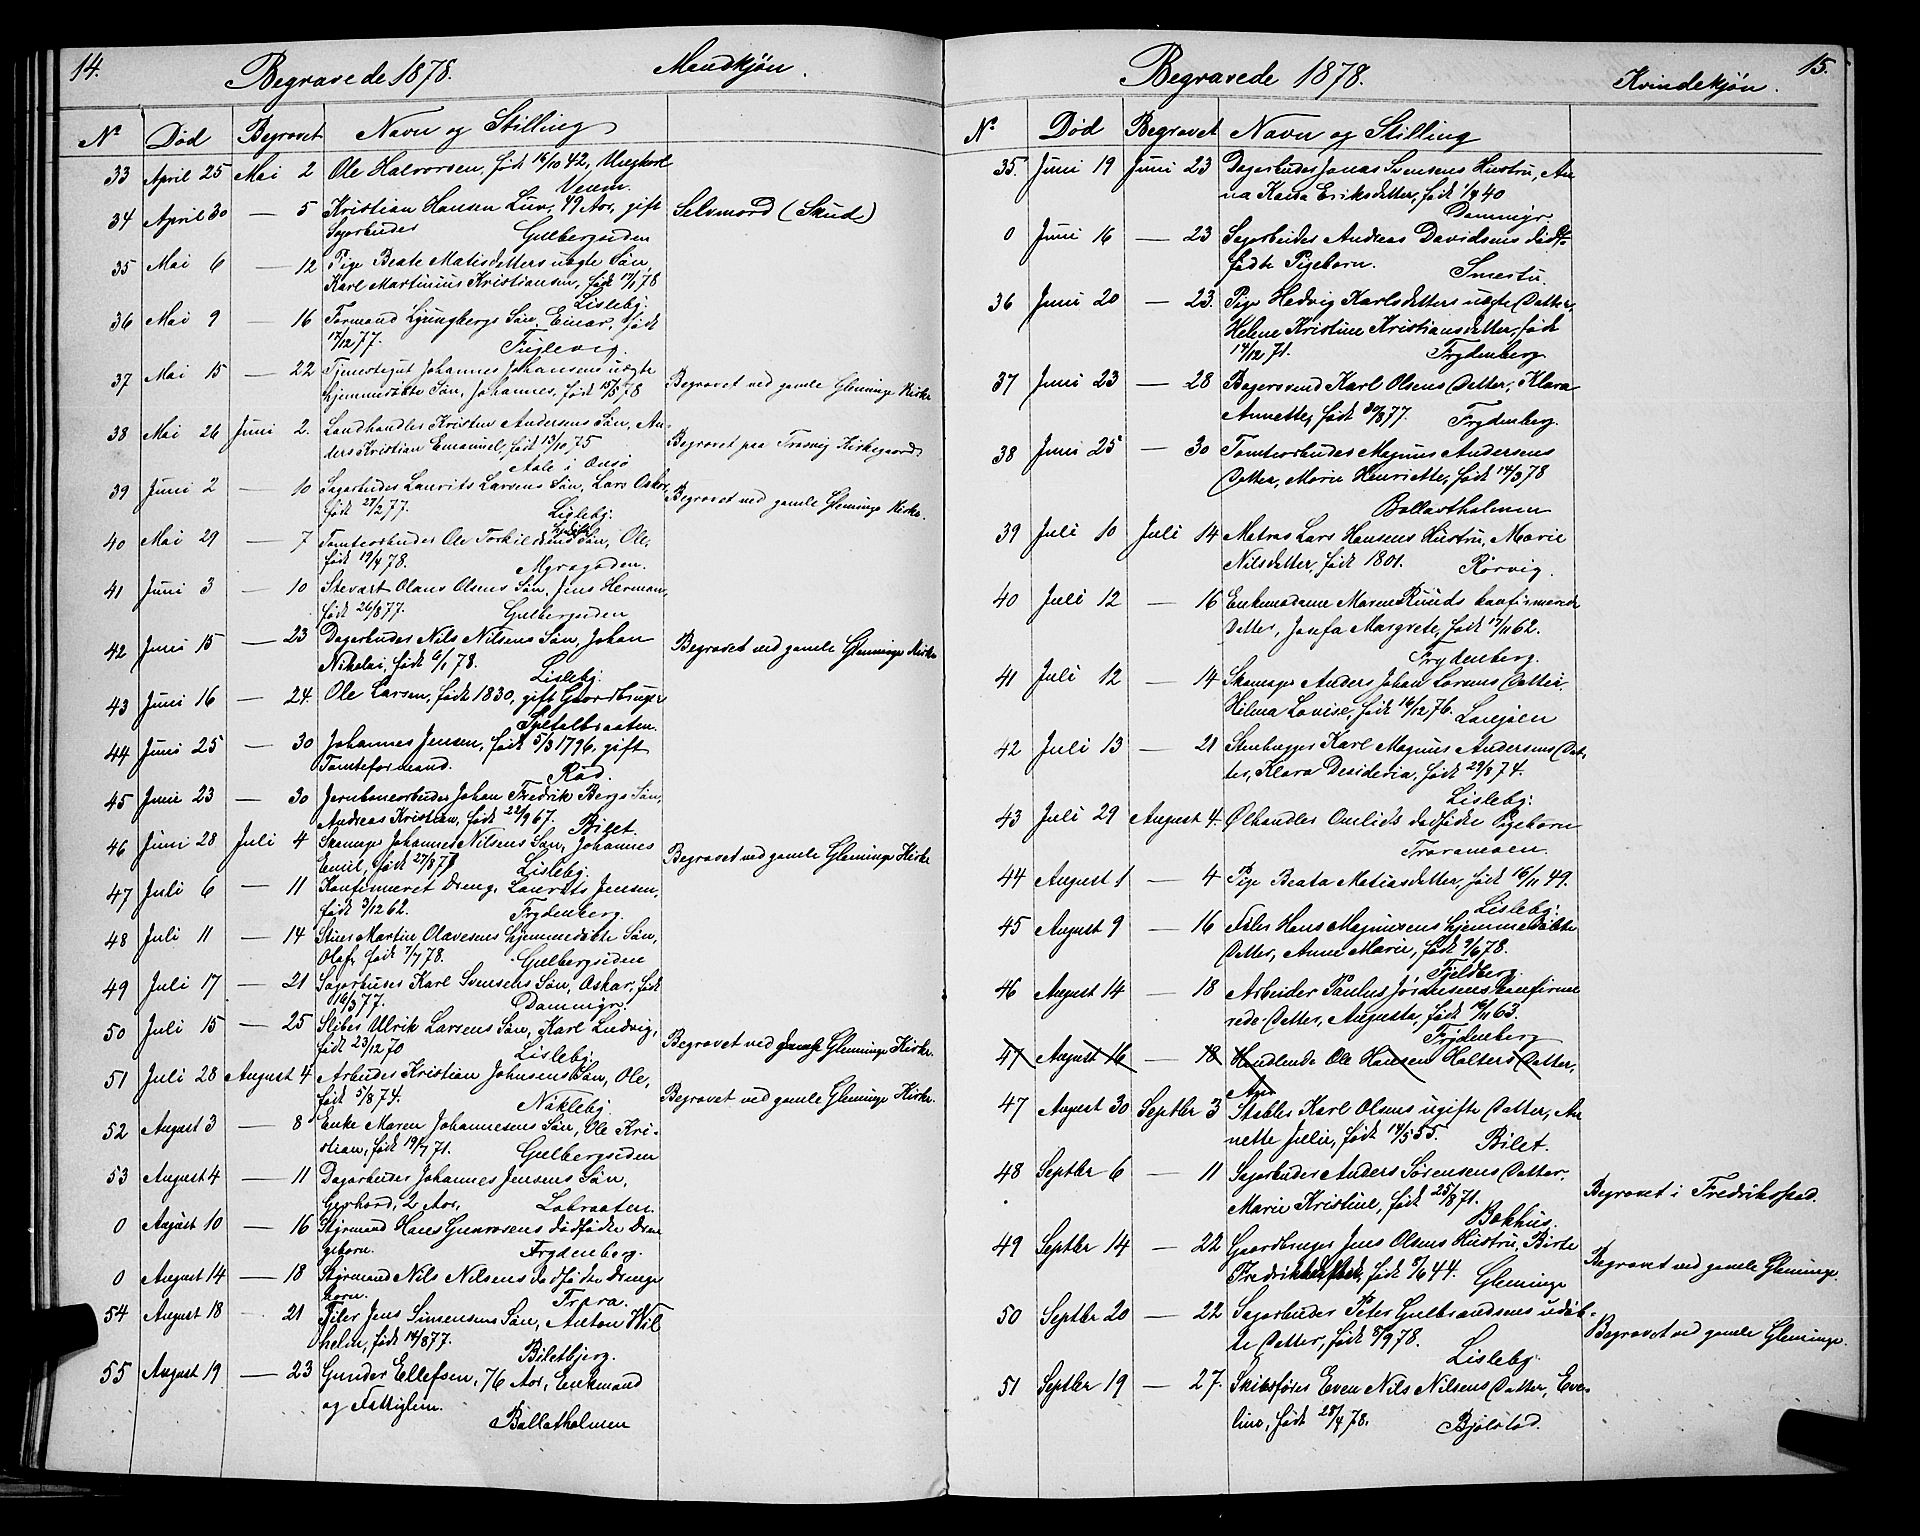 14.
Begravede 1878. Mandkjøn.
No Død Begravet Navn og Stilling
33 April 25 Mai 2 Ole Halvorsen, født 16/10 42, Ungkarl
Veum.
34 April 30 — 5 Kristian Hansen Lier, 49 Aar, gift Selvmord (Skud)
Sagarbeider Gulbergsiden
35 Mai 6 — 12 Pige Beate Matisdatters uægte Søn,
Karl Martinius Kristiansen, født 17/1 78
Lisleby.
36 Mai 9 — 16 Formand Ljungbergs Søn, Einar, født
17/12 77. Fuglevig.
37 Mai 15 — 22 Tjenestegut Johannes Johansens uægte
hjemmedøbte Søn, Johannes, født 15/5 78 Begravet ved gamle Glemminge Kirke
38 Mai 26 Juni 2. Landhandler Kristen Andersens Søn, An-
ders Kristian Emanuel, født 13/10 75 Begravet paa Trosvig Kirkegaard
Aale i Onsø
39 Juni 2 — 10 Sagarbeider Laurits Larsens Søn, Lars Oskar
født 27/2 77. Lisleby. Begravet ved gamle Glemminge Kirke.
40 Mai 29 — 7 Tomtearbeider Ole Torkildsens Søn, Ole,
født 19/4 78. Myragaden.
41 Juni 3 — 10 Stevart Olaus Olsens Søn, Jens Herman,
født 26/8 77. Gulbergsiden
42 Juni 15 — 23 Dagarbeider Nils Nilsens Søn, Johan
Nikolai, født 6/1 78. Lisleby. Begravet ved gamle Glemminge Kirke
43 Juni 16 — 24. Ole Larsen, født 1830, gift Gaardbruger
Spetalbraaten.
44 Juni 25 — 30 Johannes Jensen, født 5/3 1796, gift
Tomteformand. Rød.
45 Juni 23 — 30 Jernbanearbeider Johan Fredrik Bergs Søn,
Andreas Kristian, født 22/9 67. Bilet.
46 Juni 28 Juli 4 Skomager Johannes Nilsens Søn, Johannes
Emil, født 27/9 77 Lisleby. Begravet ved gamle Glemminge Kirke
47 Juli 6 — 11 Konfirmeret Dreng, Laurits Jensen,
født 3/12 62. Frydenberg.
48 Juli 11 — 14 Stuer Martin Olavesens hjemmedøbte Søn,
Olaf, født 7/7 78. Gulbergsiden
49 Juli 17 — 21 Sagarbeider Karl Svensens Søn, Oskar, født
16/3 77. Dammyr.
50 Juli 15 — 25 Sliber Ulrik Larsens Søn, Karl Ludvig,
født 23/12 70 Lisleby. Begravet ved gamle Glemminge Kirke.
51 Juli 28 August 4 Arbeider Kristian Johnsens Søn, Ole,
født 5/8 74. Nökleby. Begravet ved gamle Glemminge Kirke.
52 August 3 — 8 Enke Maren Johannesens Søn, Ole Kri-
stian, født 19/7 71. Gulbergsiden
53 August 4 — 11 Dagarbeider Johannes Jensens Søn,
Gerhard, 2 Aar, Labraaten.
0 August 10 — 16 Styrmand Hans Gunrosens dødfødte Dren
gebarn. Frydenberg.
0 August 14 — 18 Styrmand Nils Nilsens dødfødte Drenge
barn. Trara.
54 August 18 — 21 Filer Jens Simensens Søn, Anton Wil
helm, født 14/8 77. Biletbjerg.
55 August 19 — 23 Gunder Ellefsen, 76 Aar, Enkemand
og Fattiglem. Ballatholmen
15.
Begravede 1878. Kvindekjøn.
No Død Begravet Navn og Stilling
35. Juni 19 Juni 23 Dagarbeider Jonas Svensens Hustru, An-
na Kaisa Eriksdatter, født 1/8 40
Dammyr.
0 Juni 16 — 23 Sagarbeider Andreas Davidsens død-
fødte Pigebarn. Smertu.
36 Juni 20 — 23. Pige Hedvig Karlsdatters uægte Datter,
Helene Kristine Kristiansdatter, født
14/12 71. Frydenberg
37 Juni 23 — 28 Bagersvend Karl Olsens Datter, Klara
Annette, født 30/8 77. Frydenberg.
38 Juni 25 — 30 Tomtearbeider Magnus Andersens
Datter, Marie Henriette, født 14/3 78
Ballastholmen
39 Juli 10 Juli 14 Matros Lars Hansens Hustru, Marie
Nilsdatter, født 1801. Rörvig.
40 Juli 12 — 16 Enkemadame Maren Ruuds konfirmerede
Datter, Josefa Margrete, født 17/11 62.
Frydenberg.
41 Juli 12 — 14 Skomager Anders Johan Larsens Datter
Hilma Lovise, født 16/12 76. Lanejøen
42 Juli 13 — 21 Stenhugger Karl Magnus Andersens Dat-
ter, Klara Desideria, født 29/8 74.
Lisleby.
43 Juli 29 August 4. Ølhandler Omlids dødfødte Pigebarn
Traramoen.
44 August 1 — 4 Pige Beata Matiasdatter, født 16/11 49.
Lisleby.
45 August 9 — 16 Føler Hans Magnusens hjemmedøbte
Datter, Anne Marie, født 9/6 78.
Fjeldberg.
46 August 14 — 18 Arbeider Paulus Jørgensens konfirme
rede Datter, Augusta, født 16/11 63.
Frydenberg
47 August 16 — 18 Handlende Ole Hansen Holters Datter,
Aga
47 August 30 Septbr 3 Stabler Karl Olsens ugifte Datter, An
nette Julie, født 14/5 55. Bilet.
48 Septbr 6 — 11 Sagarbeider Anders Sørensens Datter
Marie Kristine, født 25/8 71. Begravet i Fredriksstad.
Bakhus.
49 Septbr 14 — 22 Gaardbruger Jens Olsens Hustru, Birte
Fredrikkesdatter, født 8/6 44. Gleminge Begravet ved gamle Gleminge.
50 Septbr 20 — 22 Sagarbeider Peter Gulbrandsens udøb-
te Datter, født 8/9 78. Begravet ved gamle Gleminge.
Lisleby.
51 Septbr 19 — 27. Skibsfører Even Nils Nilsens Datter, Eve-
line, født 28/4 78. Bjølstad.